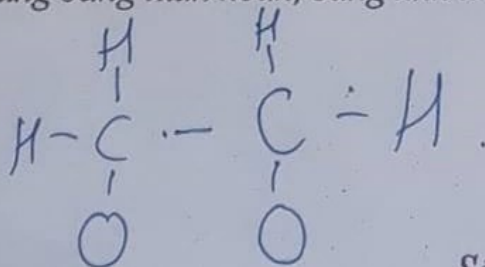 H H
H - C - C - H
O O